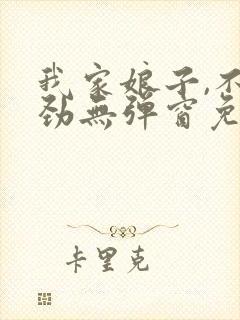 我家娘子,不
劲無弹窗免
卡里克